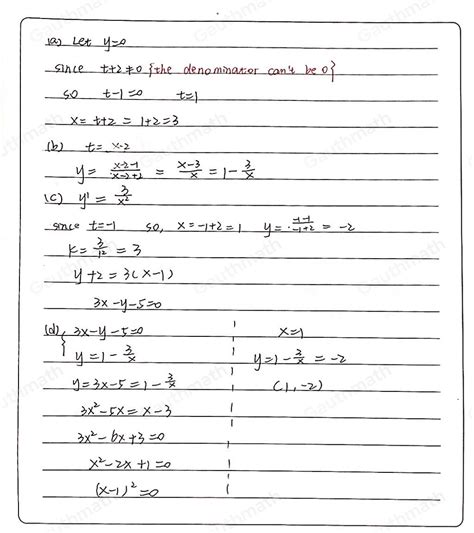 (a) Let y=0
since t+2≠0 {the denominator can't be 0}
so t-1=0 t=1
x= t+2 = 1+2=3
(b) t= x-2
y= \frac{x-2-1}{x-2+2} = \frac{x-3}{x} = 1-\frac{3}{x}
(c) y'= \frac{3}{x^2}
since t=-1 so, x=-1+2=1 y= \frac{-1-1}{-1+2} = -2
k= \frac{3}{1^2} = 3
y+2=3(x-1)
3x-y-5=0
(d) { 3x-y-5=0
y=1-\frac{3}{x}
y=3x-5=1-\frac{3}{x}
3x²-5x=x-3
3x²-6x+3=0
x²-2x+1=0
(x-1)²=0
x=1
y=1-\frac{3}{x}=-2
(1,-2)
Gauthmath